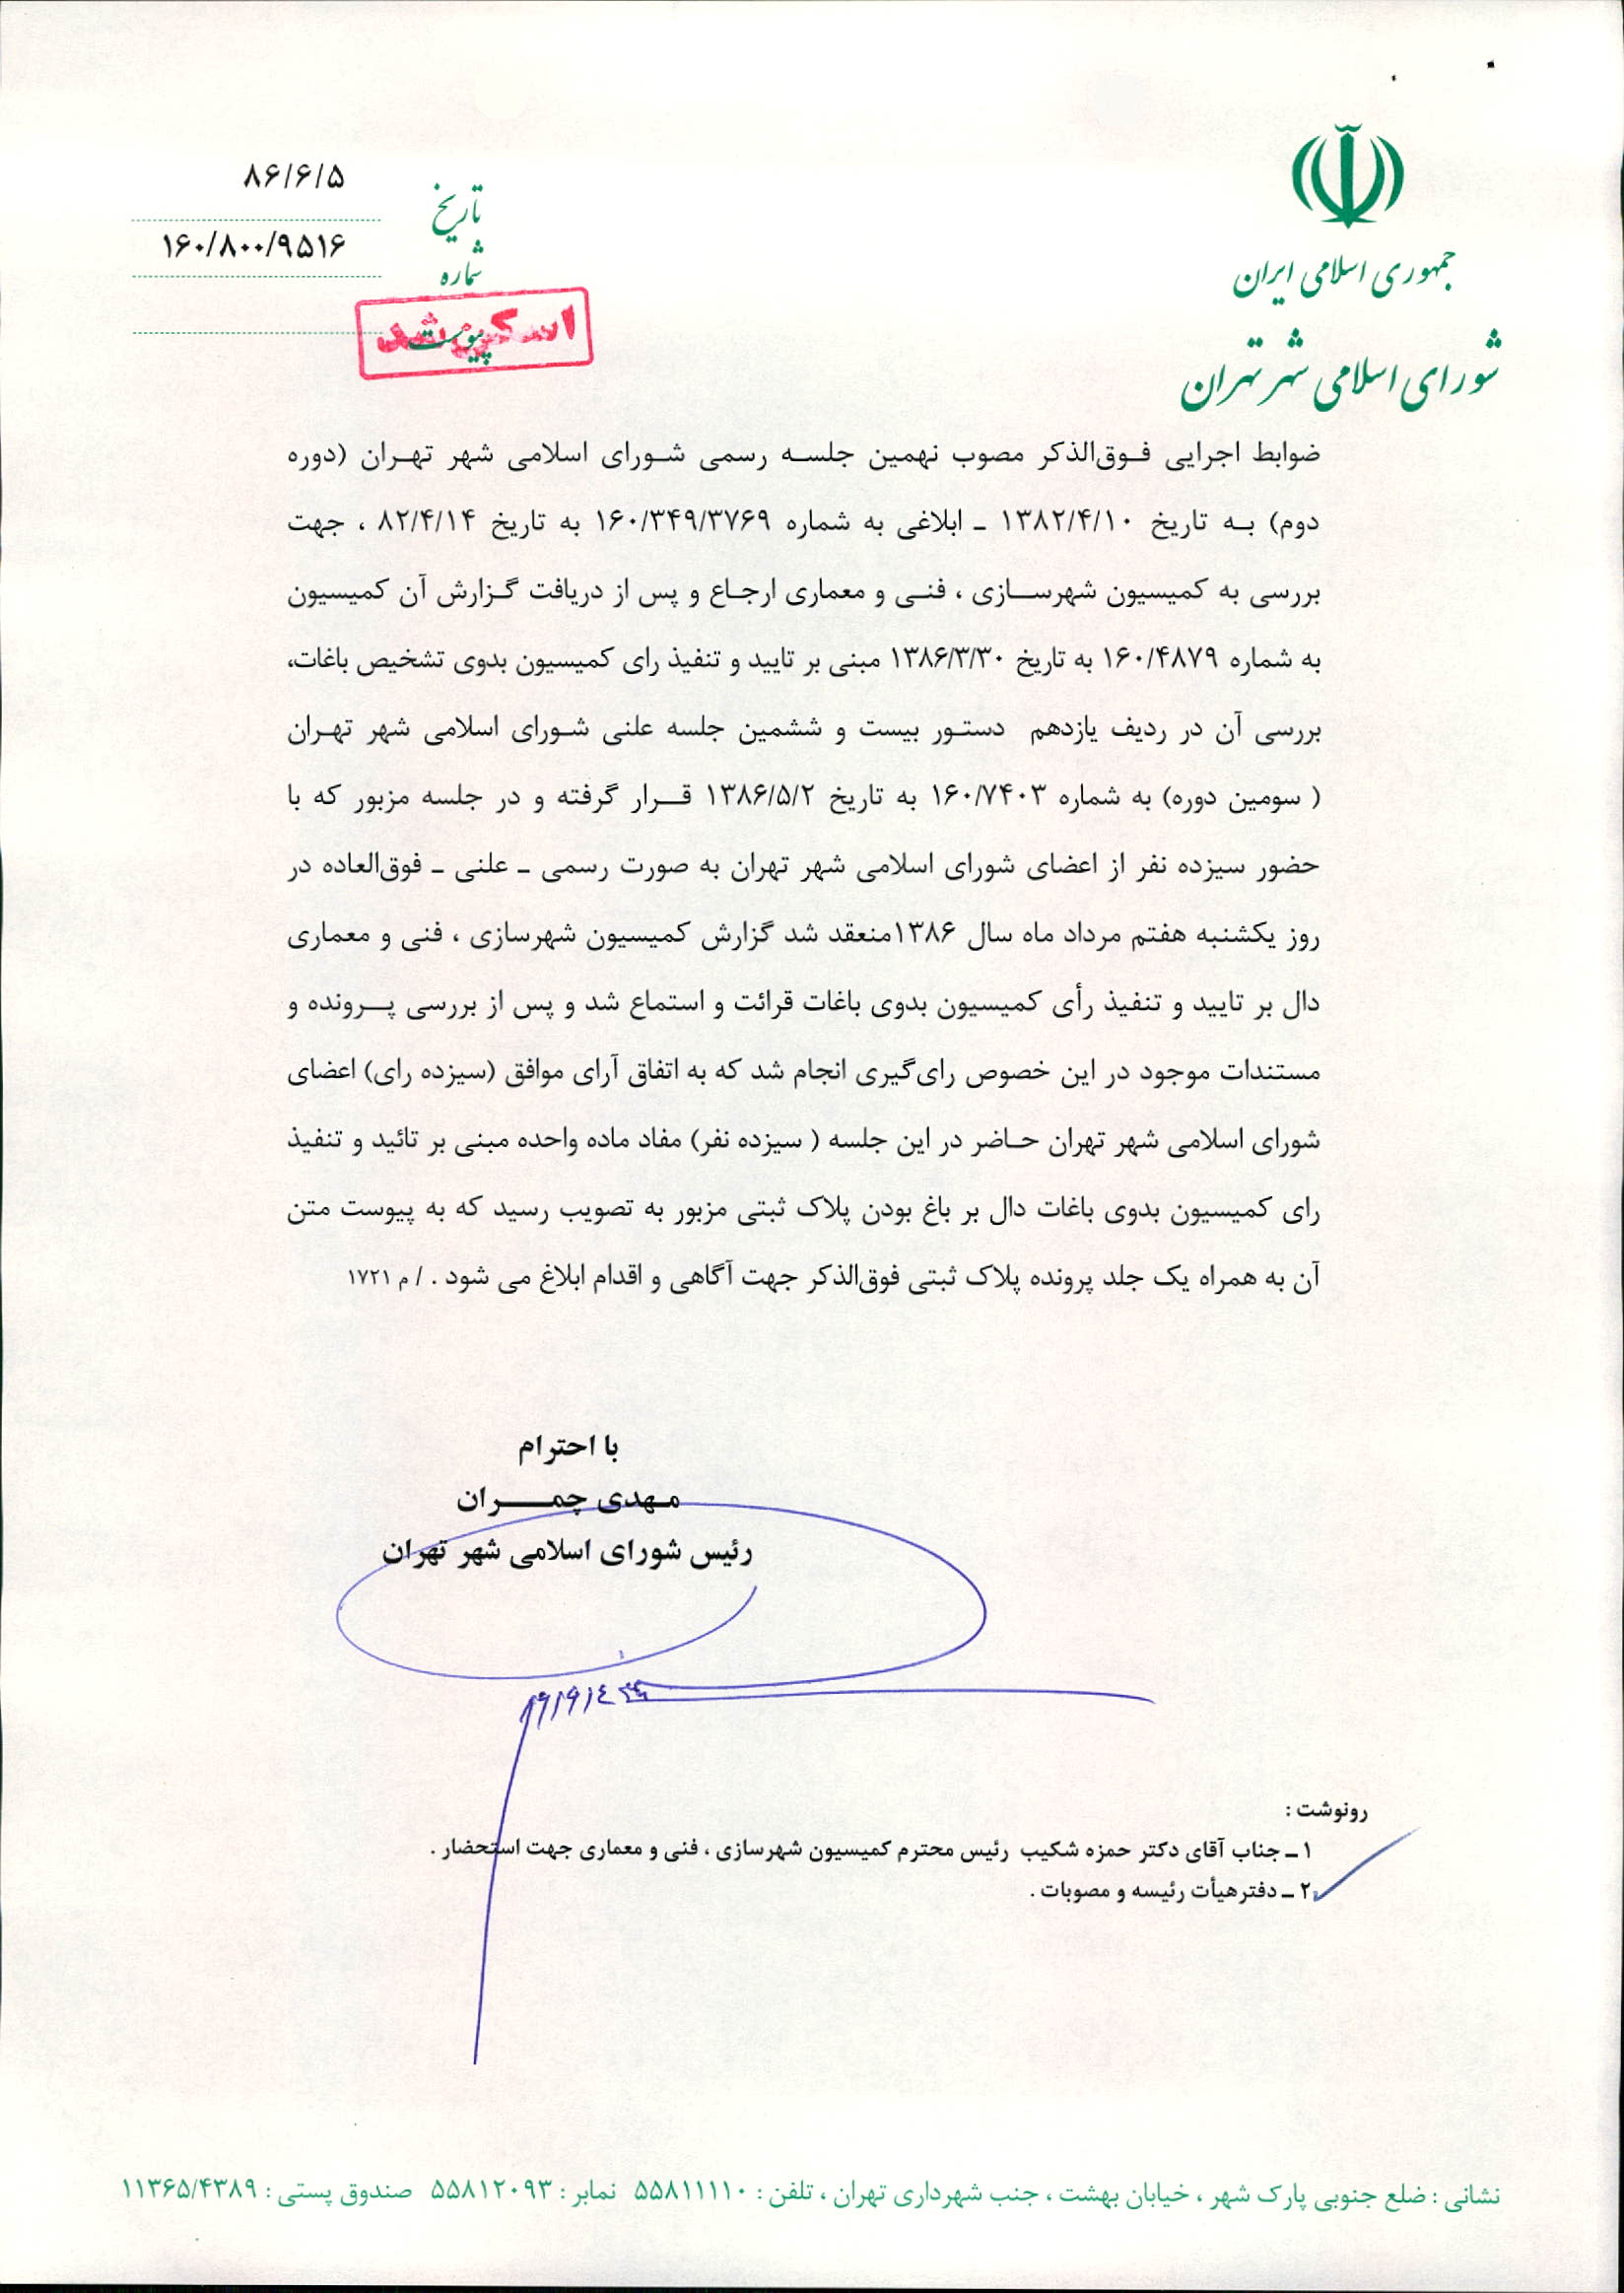 جمهوری اسلامی ایران
شورای اسلامی شهر تهران
تاریخ ۸۶/۶/۵
شماره ۱۶۰/۸۰۰/۹۵۱۶
پیوست
اسکن شد
ضوابط اجرایی فوق‌الذکر مصوب نهمین جلسه رسمی شورای اسلامی شهر تهران (دوره
دوم) به تاریخ ۱۳۸۲/۴/۱۰ ـ ابلاغی به شماره ۱۶۰/۳۴۹/۳۷۶۹ به تاریخ ۸۲/۴/۱۴ ، جهت
بررسی به کمیسیون شهرسازی ، فنی و معماری ارجاع و پس از دریافت گزارش آن کمیسیون
به شماره ۱۶۰/۴۸۷۹ به تاریخ ۱۳۸۶/۳/۳۰ مبنی بر تایید و تنفیذ رای کمیسیون بدوی تشخیص باغات،
بررسی آن در ردیف یازدهم دستور بیست و ششمین جلسه علنی شورای اسلامی شهر تهران
( سومین دوره) به شماره ۱۶۰/۷۴۰۳ به تاریخ ۱۳۸۶/۵/۲ قرار گرفته و در جلسه مزبور که با
حضور سیزده نفر از اعضای شورای اسلامی شهر تهران به صورت رسمی ـ علنی ـ فوق‌العاده در
روز یکشنبه هفتم مرداد ماه سال ۱۳۸۶منعقد شد گزارش کمیسیون شهرسازی ، فنی و معماری
دال بر تایید و تنفیذ رأی کمیسیون بدوی باغات قرائت و استماع شد و پس از بررسی پرونده و
مستندات موجود در این خصوص رای‌گیری انجام شد که به اتفاق آرای موافق (سیزده رای) اعضای
شورای اسلامی شهر تهران حاضر در این جلسه ( سیزده نفر) مفاد ماده واحده مبنی بر تائید و تنفیذ
رای کمیسیون بدوی باغات دال بر باغ بودن پلاک ثبتی مزبور به تصویب رسید که به پیوست متن
آن به همراه یک جلد پرونده پلاک ثبتی فوق‌الذکر جهت آگاهی و اقدام ابلاغ می شود . / م ۱۷۲۱
با احترام
مهدی چمران
رئیس شورای اسلامی شهر تهران
رونوشت :
۱ ـ جناب آقای دکتر حمزه شکیب رئیس محترم کمیسیون شهرسازی ، فنی و معماری جهت استحضار .
۲ ـ دفترهیأت رئیسه و مصوبات .
نشانی : ضلع جنوبی پارک شهر ، خیابان بهشت ، جنب شهرداری تهران ، تلفن : ۵۵۸۱۱۱۱۰ نمابر : ۵۵۸۱۲۰۹۳ صندوق پستی : ۱۱۳۶۵/۴۳۸۹